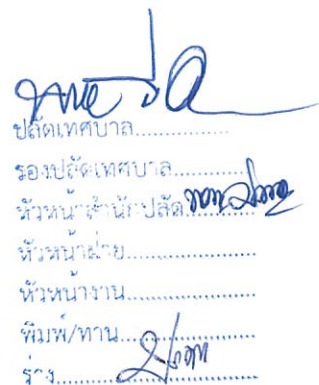 ปลัดเทศบาล..................
รองปลัดเทศบาล................
หัวหน้าสำนักปลัด..............
หัวหน้าฝ่าย....................
หัวหน้างาน....................
พิมพ์/ทาน....................
ร่าง..........................